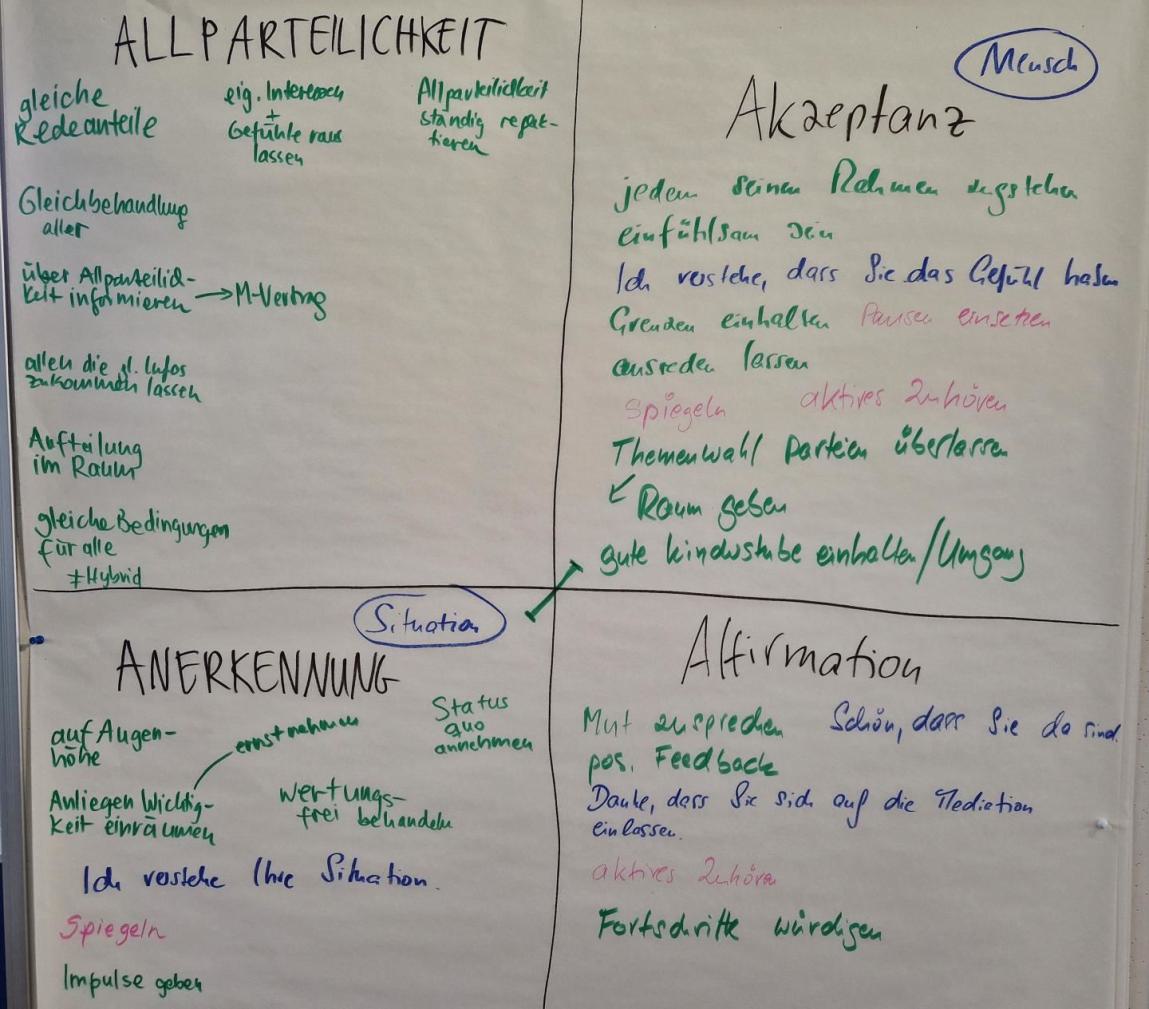 ALLPARTEILICHKEIT
gleiche
Redeanteile
eig. Interessen
+
Gefühle raus
lassen
Allparteilichkeit
ständig reflek-
tieren
Gleichbehandlung
aller
über Allparteilich-
keit informieren → M-Vertrag
allen die gl. Infos
zukommen lassen
Aufteilung
im Raum
gleiche Bedingungen
für alle
≠ Hybrid
Mensch
Akzeptanz
jedem seinen Rahmen zugstehen
einfühlsam sein
Ich verstehe, dass Sie das Gefühl haben
Grenzen einhalten Pausen einsetzen
ausreden lassen
spiegeln aktives Zuhören
Themenwahl Parteien überlassen
↙ Raum geben
gute Kinderstube einhalten / Umgang
Situation
ANERKENNUNG
auf Augen-
höhe
ernst nehmen
Status
quo
annehmen
Anliegen Wichtig-
keit einräumen
wertungs-
frei behandeln
Ich verstehe Ihre Situation.
Spiegeln
Impulse geben
Affirmation
Mut zusprechen Schön, dass Sie da sind.
pos. Feedback
Danke, dass Sie sich auf die Mediation
einlassen.
aktives Zuhören
Fortschritte würdigen